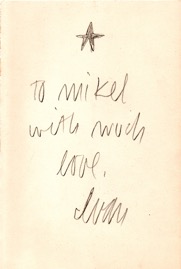 To mikel
with much
love.
Ivan